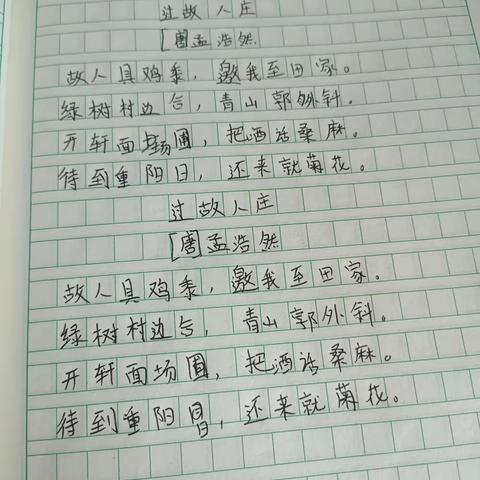 过故人庄
[唐孟浩然
故人具鸡黍，邀我至田家。
绿树村边合，青山郭外斜。
开轩面场圃，把酒话桑麻。
待到重阳日，还来就菊花。
过故人庄
[唐孟浩然
故人具鸡黍，邀我至田家。
绿树村边合，青山郭外斜。
开轩面场圃，把酒话桑麻。
待到重阳日，还来就菊花。